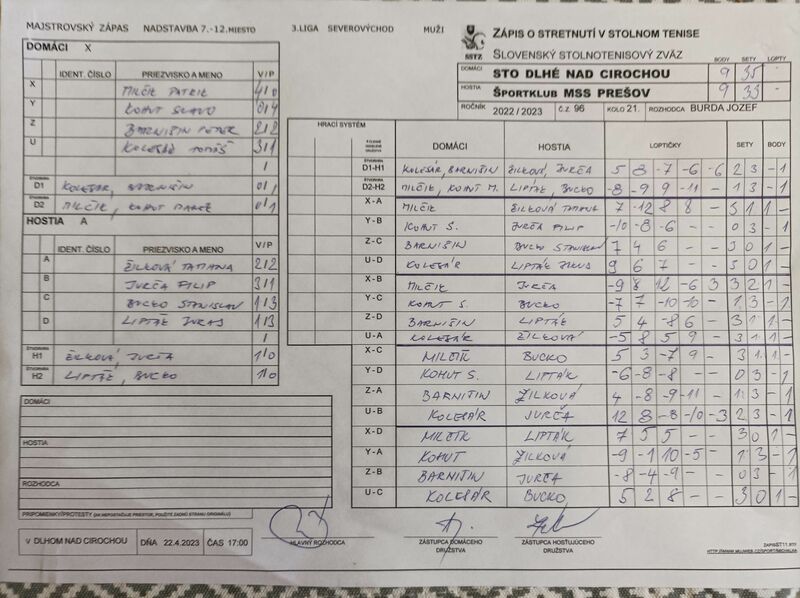 MAJSTROVSKÝ ZÁPAS NADSTAVBA 7.-12.MIESTO 3.LIGA SEVEROVÝCHOD MUŽI
ZÁPIS O STRETNUTÍ V STOLNOM TENISE
SSTZ SLOVENSKÝ STOLNOTENISOVÝ ZVÄZ
BODY SETY LOPTY
DOMÁCI STO DLHÉ NAD CIROCHOU 9 35 -
HOSTIA ŠPORTKLUB MSS PREŠOV 9 33 -
ROČNÍK 2022 / 2023 Č.Z. 96 KOLO 21. ROZHODCA BURDA JOZEF
DOMÁCI X
IDENT. ČÍSLO PRIEZVISKO A MENO V/P
X MILČÍK PATRIK 4/0
Y KOHUT SLAVO 0/4
Z BARNIŠIN PETER 2/2
U KOLESÁR TOMÁŠ 3/1
/
ŠTVORHRA D1 KOLESÁR, BARNIŠIN 0/1
ŠTVORHRA D2 MILČÍK, KOHUT 0/1
HOSTIA A
IDENT. ČÍSLO PRIEZVISKO A MENO V/P
A ŽILKOVÁ TATIANA 2/2
B JURČA FILIP 3/1
C BUCKO STANISLAV 1/3
D LIPTÁK JURAJ 1/3
/
ŠTVORHRA H1 ŽILKOVÁ, JURČA 1/0
ŠTVORHRA H2 LIPTÁK, BUCKO 1/0
HRACÍ SYSTÉM
DOMÁCI HOSTIA LOPTIČKY SETY BODY
ŠTVORHRA D1-H1 KOLESÁR, BARNIŠIN ŽILKOVÁ, JURČA 5 8 -7 -6 -6 2 3 - 1
ŠTVORHRA D2-H2 MILČÍK, KOHUT M. LIPTÁK, BUCKO -8 -9 9 -11 - 1 3 - 1
X-A MILČÍK ŽILKOVÁ TATIANA 7 -12 8 8 - 3 1 1 -
Y-B KOHUT S. JURČA FILIP -10 -8 -6 - - 0 3 - 1
Z-C BARNIŠIN BUCKO STANISLAV 7 4 6 - - 3 0 1 -
U-D KOLESÁR LIPTÁK JURAJ 9 6 7 - - 3 0 1 -
X-B MILČÍK JURČA -9 8 12 -6 3 3 2 1 -
Y-C KOHUT S. BUCKO -7 7 -10 -10 - 1 3 - 1
Z-D BARNIŠIN LIPTÁK 5 4 -8 6 - 3 1 1 -
U-A KOLESÁR ŽILKOVÁ -5 8 5 9 - 3 1 1 -
X-C MILČÍK BUCKO 5 3 -7 9 - 3 1 1 -
Y-D KOHUT S. LIPTÁK -6 -8 -8 - - 0 3 - 1
Z-A BARNIŠIN ŽILKOVÁ 4 -8 -9 -11 - 1 3 - 1
U-B KOLESÁR JURČA 12 8 -8 -10 -3 2 3 - 1
X-D MILČÍK LIPTÁK 7 5 5 - - 3 0 1 -
Y-A KOHUT ŽILKOVÁ -9 -1 10 -5 - 1 3 - 1
Z-B BARNIŠIN JURČA -8 -4 -9 - - 0 3 - 1
U-C KOLESÁR BUCKO 5 2 8 - - 3 0 1 -
DOMÁCI
HOSTIA
ROZHODCA
PRIPOMIENKY/PROTESTY (AK NEPOSTAČUJE PRIESTOR, POUŽITE ZADNÚ STRANU ORIGINÁLU)
V DLHOM NAD CIROCHOU DŇA 22.4.2023 ČAS 17:00
HLAVNÝ ROZHODCA
ZÁSTUPCA DOMÁCEHO DRUŽSTVA
ZÁSTUPCA HOSŤUJÚCEHO DRUŽSTVA